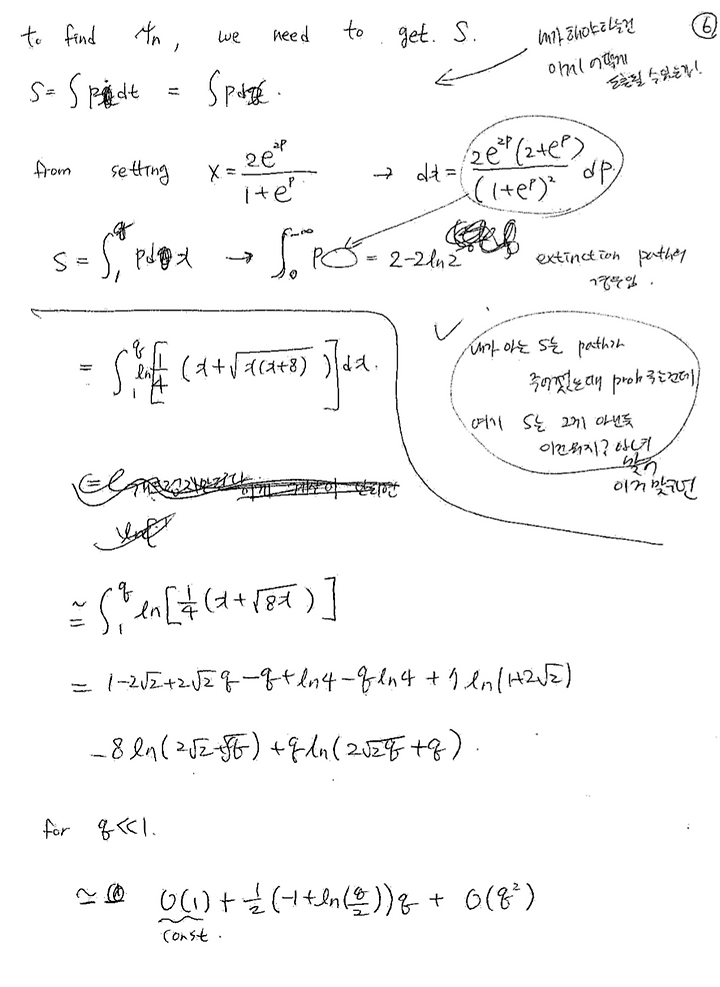 to find ψn, we need to get. S.
⑥
내가 해야하는건
어떻게
도출될 수 있는가!
S = ∫ p dt = ∫ p dx.
from setting x = 2e^{2p} / (1+e^p) → dx = 2e^{2p}(2+e^p) / (1+e^p)² dp.
S = ∫₁^q p dx → ∫₀^{-∞} p = 2-2ln2 extinction path의
경우임.
= ∫₁^q ln[1/4 (x+√(x(x+8)))] dx.
내가 아는 S는 path가
주어졌는때 prob 주는건데
여기 S는 그게 아닌듯
이건 뭐지? 아녀
맞어
이거 맞구먼
≃ ∫₁^q ln[1/4 (x+√8x)]
= 1-2√2+2√2q-q+ln4-q ln4+7 ln(1+2√2)
-8 ln(2√2+√q)+q ln(2√2q+q).
for q≪1.
≃ O(1) + 1/2 (-1+ln(q/2))q + O(q²)
const.